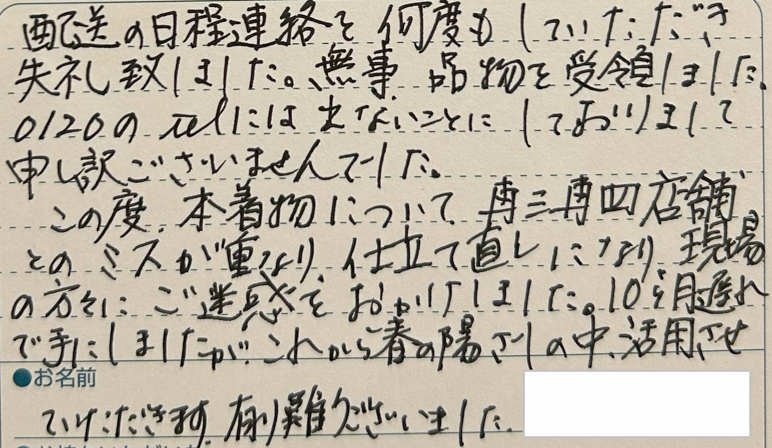 配送の日程連絡を何度もしていただき
失礼致しました。無事、品物を受領しました。
0120のtelには出ないことにしておりまして
申し訳ございませんでした。
この度、本着物について、再三再四店舗
とのミスが重なり、仕立て直しになり、現場
の方々にご迷惑をおかけしました。10ヶ月遅れ
で手にしましたが、これから春の陽ざしの中、活用させ
●お名前
ていただきます。有り難うございました。